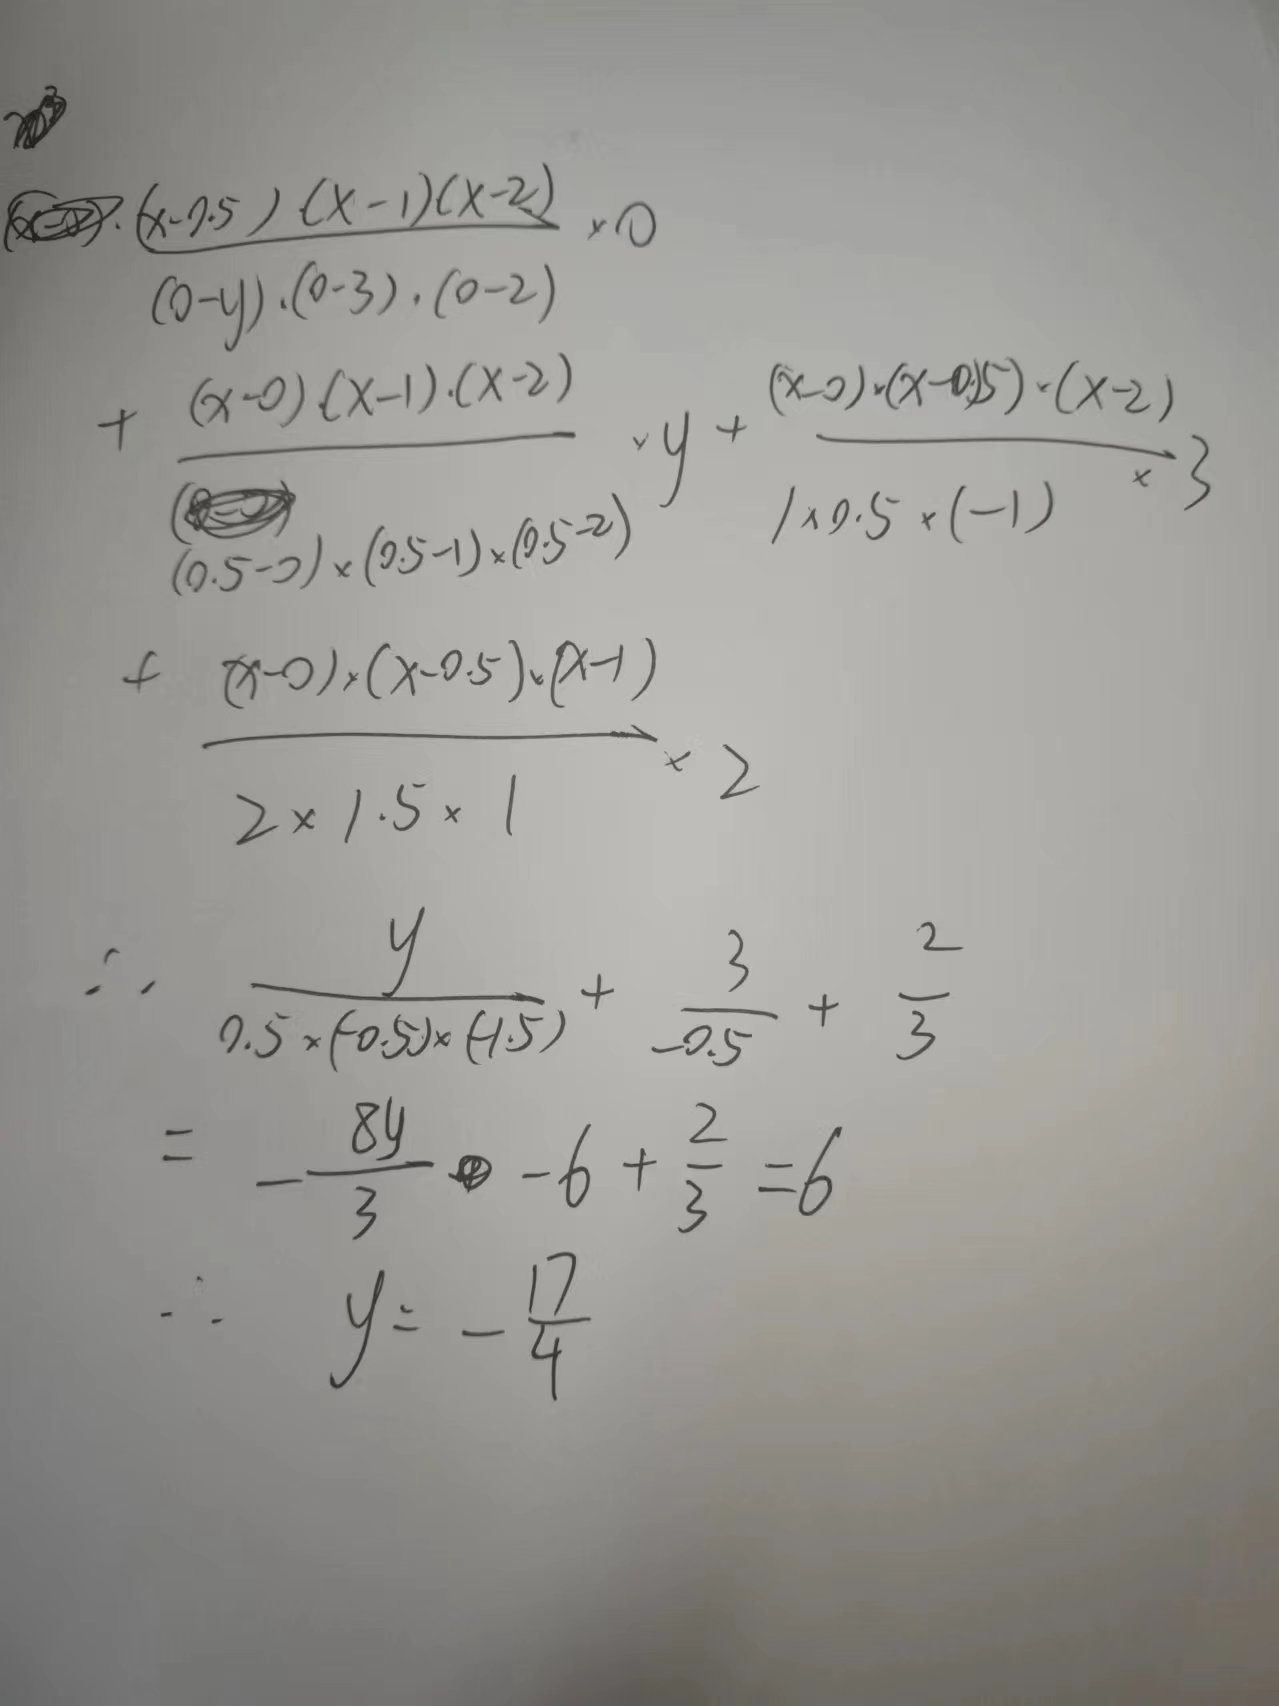 (x-0.5)(x-1)(x-2) / (0-y)·(0-3)·(0-2) ×0
+ (x-0)·(x-1)·(x-2) / (0.5-0)×(0.5-1)×(0.5-2) ×y + (x-0)·(x-0.5)·(x-2) / 1×0.5×(-1) × 3
+ (x-0)×(x-0.5)×(x-1) / 2×1.5×1 × 2
∴ y / 0.5×(-0.5)×(-1.5) + 3 / -0.5 + 2/3
= - 8y/3 -6 + 2/3 =6
∴ y= - 17/4